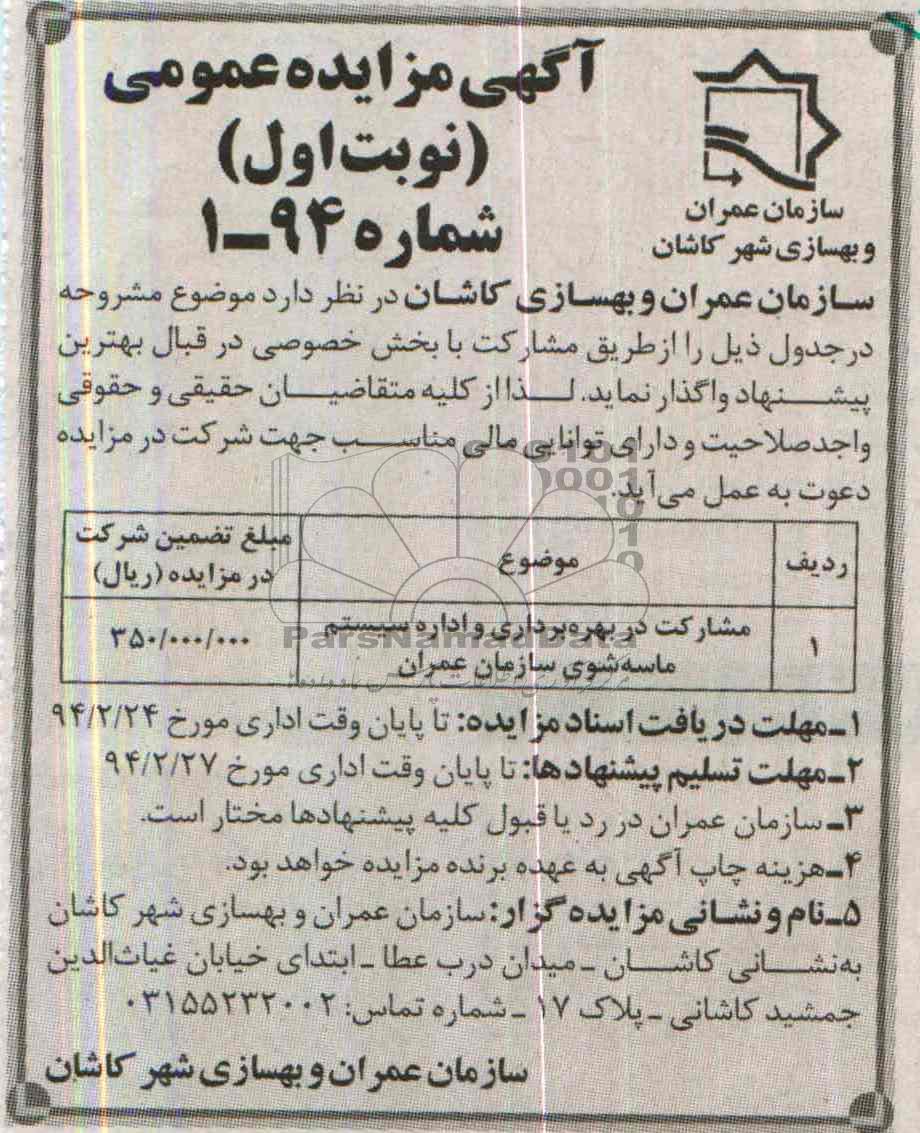 آگهی مزایده عمومی
(نوبت اول)
شماره ۹۴-۱
سازمان عمران
و بهسازی شهر کاشان
سازمان عمران و بهسازی کاشان در نظر دارد موضوع مشروحه
در جدول ذیل را از طریق مشارکت با بخش خصوصی در قبال بهترین
پیشنهاد واگذار نماید. لذا از کلیه متقاضیان حقیقی و حقوقی
واجد صلاحیت و دارای توانایی مالی مناسب جهت شرکت در مزایده
دعوت به عمل می‌آید.
ردیف	موضوع	مبلغ تضمین شرکت
در مزایده (ریال)
۱	مشارکت در بهره‌برداری و اداره سیستم	۳۵۰/۰۰۰/۰۰۰
ماسه‌شوی سازمان عمران
ParsNamadData
۱ـ مهلت دریافت اسناد مزایده: تا پایان وقت اداری مورخ ۹۴/۲/۲۴
۲ـ مهلت تسلیم پیشنهادها: تا پایان وقت اداری مورخ ۹۴/۲/۲۷
۳ـ سازمان عمران در رد یا قبول کلیه پیشنهادها مختار است.
۴ـ هزینه چاپ آگهی به عهده برنده مزایده خواهد بود.
۵ـ نام و نشانی مزایده گزار: سازمان عمران و بهسازی شهر کاشان
به‌نشانی کاشان ـ میدان درب عطا ـ ابتدای خیابان غیاث‌الدین
جمشید کاشانی ـ پلاک ۱۷ ـ شماره تماس: ۰۳۱۵۵۲۳۲۰۰۲
سازمان عمران و بهسازی شهر کاشان